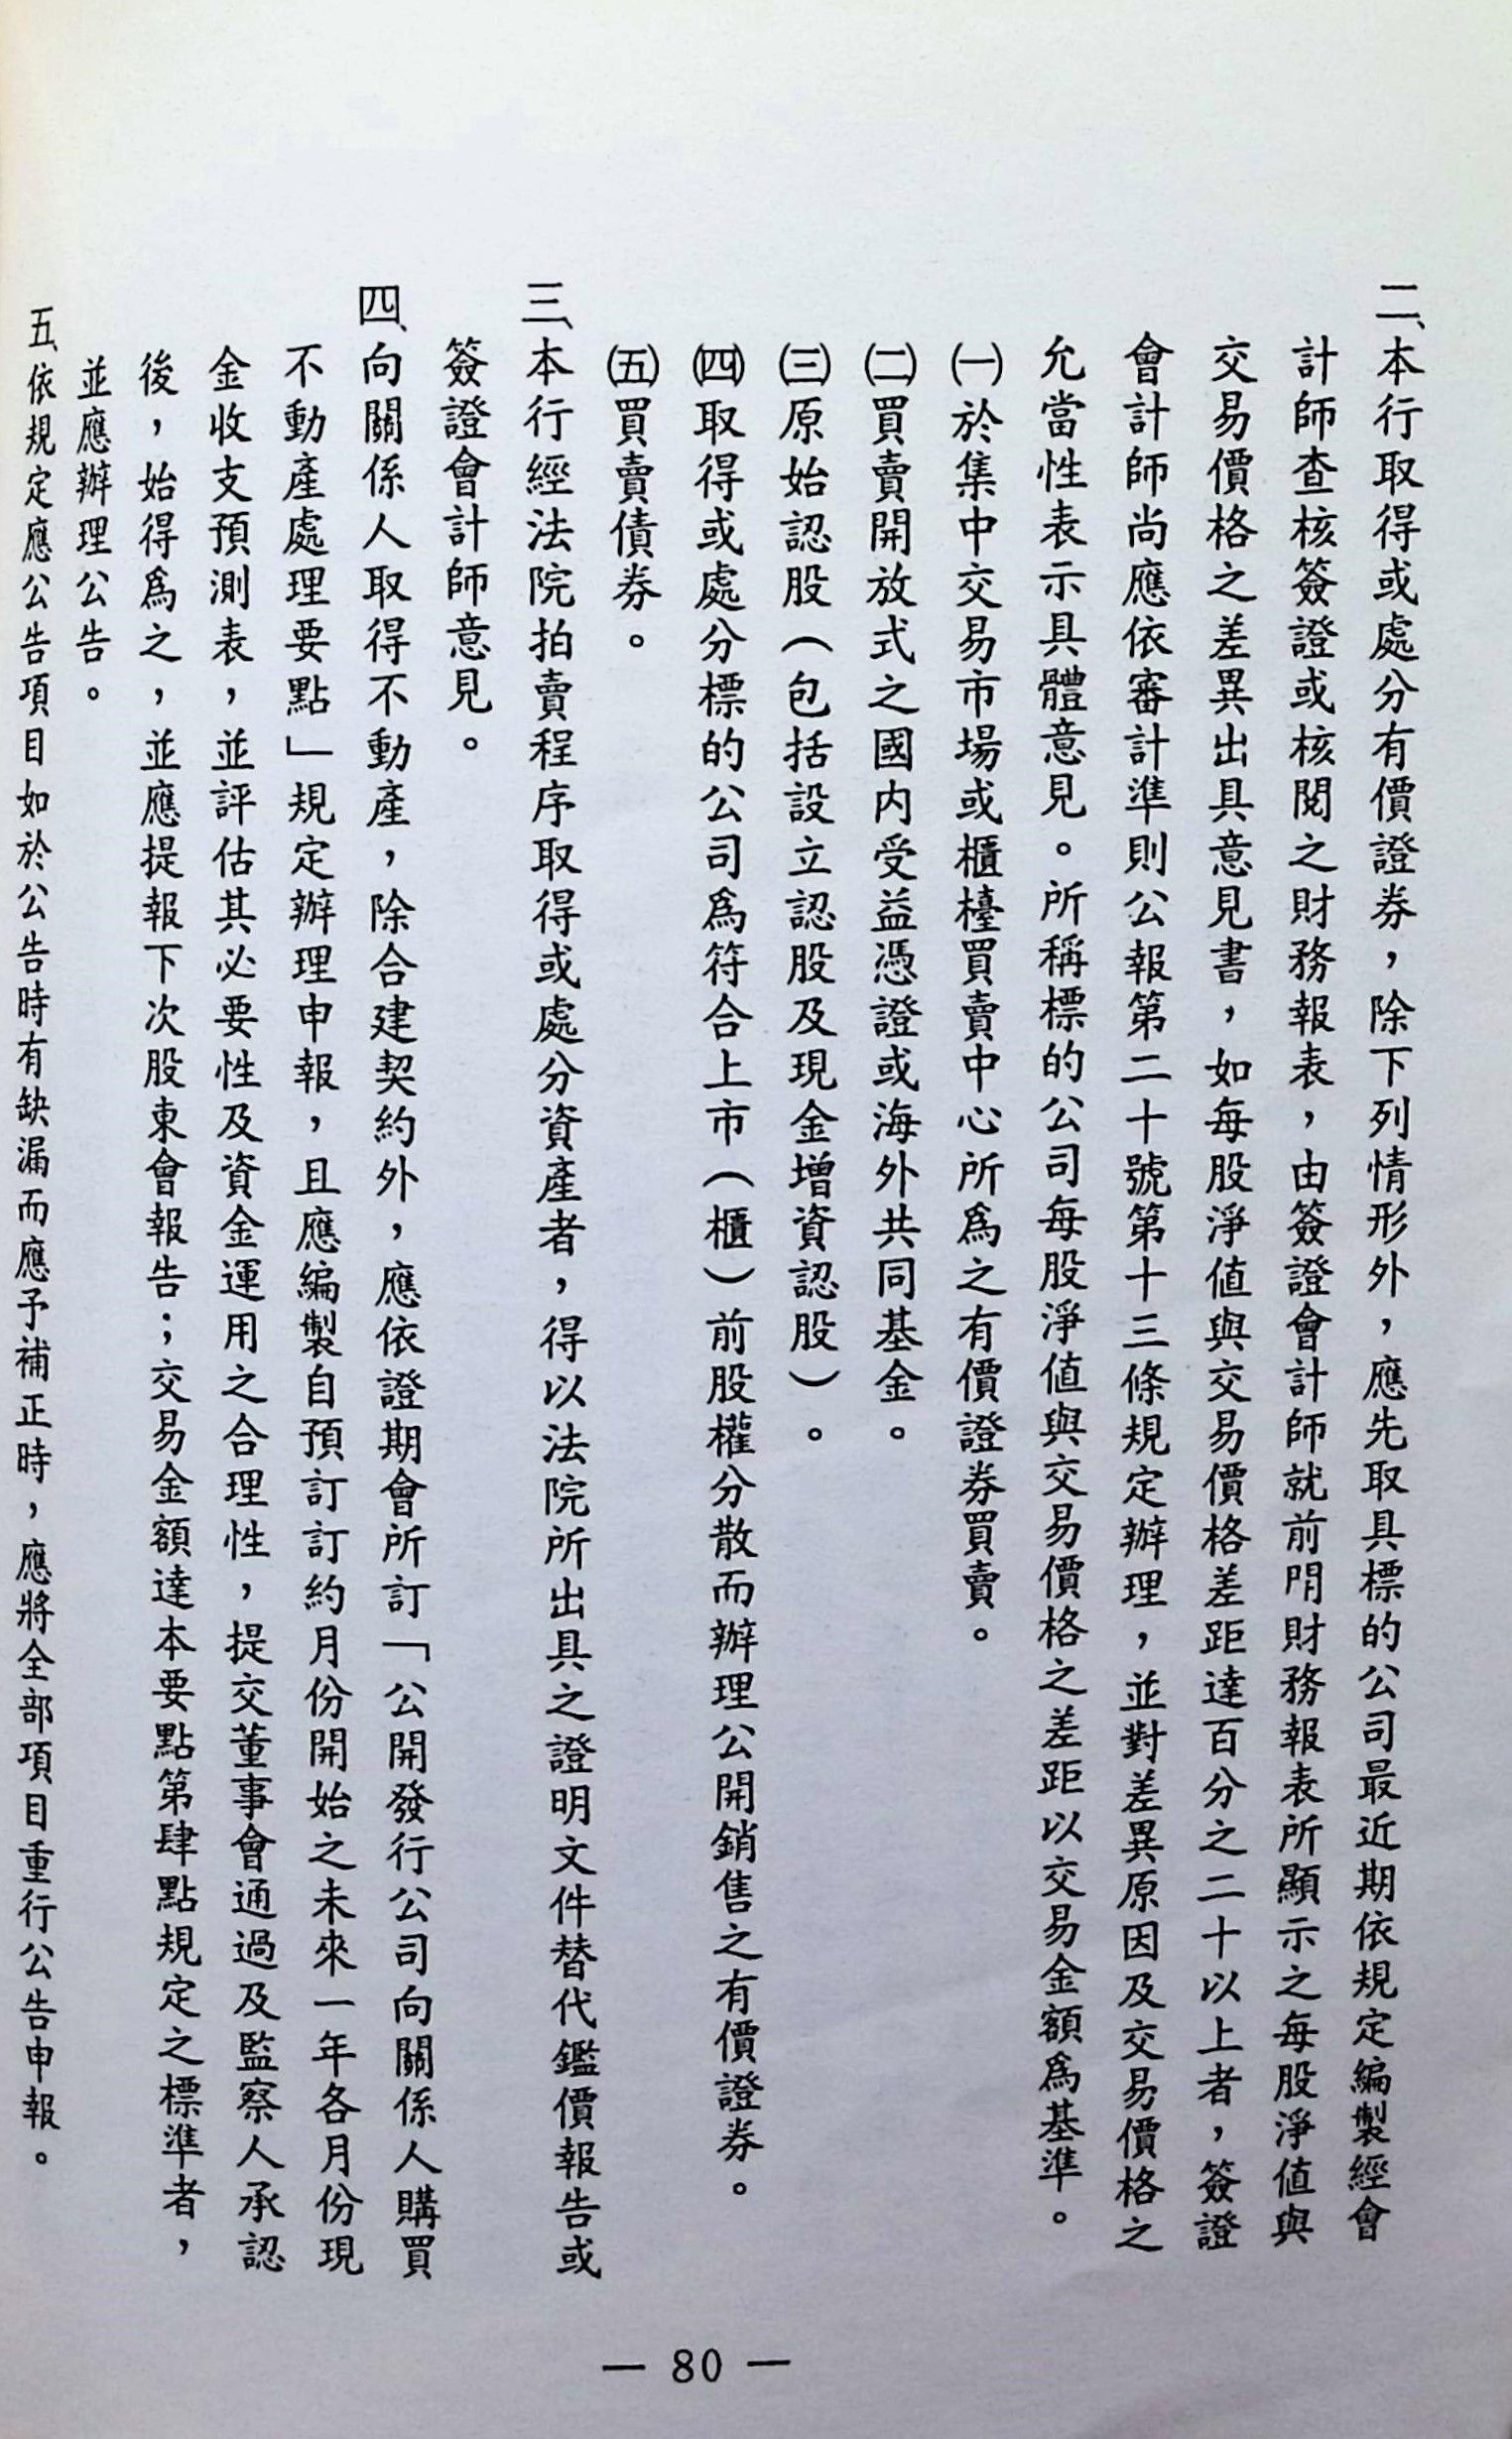 二、本行取得或處分有價證券，除下列情形外，應先取具標的公司最近期依規定編製經會
計師查核簽證或核閱之財務報表，由簽證會計師就前開財務報表所顯示之每股淨值與
交易價格之差異出具意見書，如每股淨值與交易價格差距達百分之二十以上者，簽證
會計師尚應依審計準則公報第二十號第十三條規定辦理，並對差異原因及交易價格之
允當性表示具體意見。所稱標的公司每股淨值與交易價格之差距以交易金額為基準。
㈠於集中交易市場或櫃檯買賣中心所為之有價證券買賣。
㈡買賣開放式之國內受益憑證或海外共同基金。
㈢原始認股（包括設立認股及現金增資認股）。
㈣取得或處分標的公司為符合上市（櫃）前股權分散而辦理公開銷售之有價證券。
㈤買賣債券。
三、本行經法院拍賣程序取得或處分資產者，得以法院所出具之證明文件替代鑑價報告或
簽證會計師意見。
四、向關係人取得不動產，除合建契約外，應依證期會所訂「公開發行公司向關係人購買
不動產處理要點」規定辦理申報，且應編製自預訂訂約月份開始之未來一年各月份現
金收支預測表，並評估其必要性及資金運用之合理性，提交董事會通過及監察人承認
後，始得為之，並應提報下次股東會報告；交易金額達本要點第肆點規定之標準者，
並應辦理公告。
五、依規定應公告項目如於公告時有缺漏而應予補正時，應將全部項目重行公告申報。
— 80 —